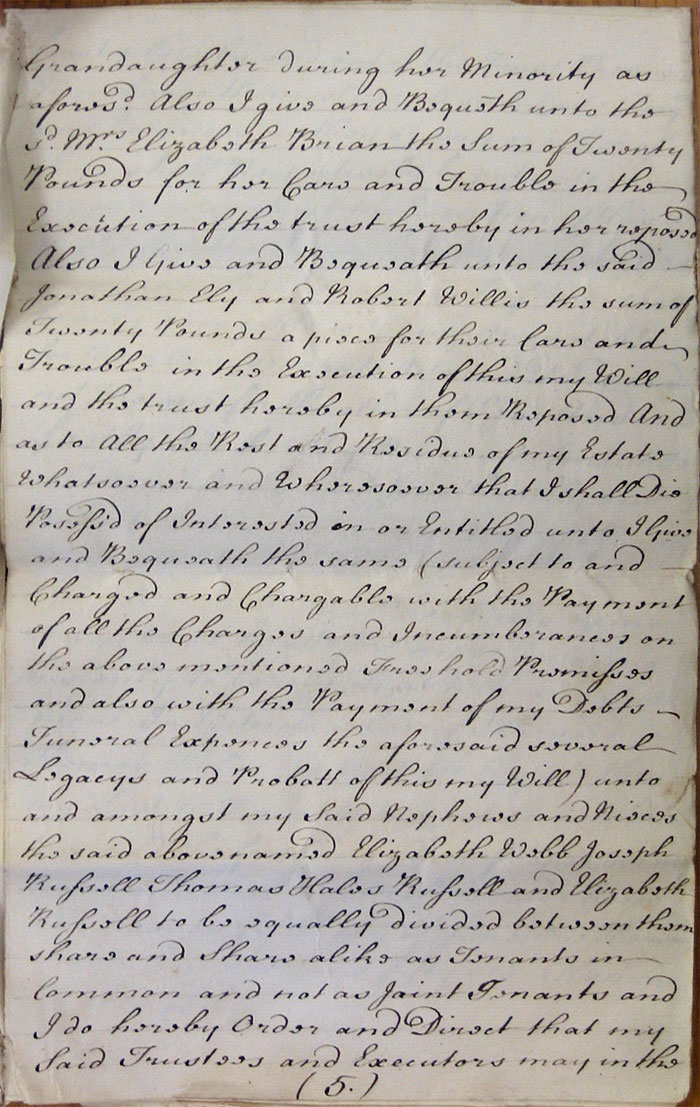 Grandaughter during her Minority as
aforesd. Also I give and Bequeth unto the
sd. Mrs Elizabeth Brian the Sum of Twenty
Pounds for her Care and Trouble in the
Execution of the trust hereby in her reposed
Also I Give and Bequeath unto the said
Jonathan Ely and Robert Willis the sum of
Twenty Pounds a piece for their Care and
Trouble in the Execution of this my Will
and the trust hereby in them Reposed And
as to All the Rest and Residue of my Estate
Whatsoever and Wheresoever that I shall Die
Posess'd of Interested in or Entitled unto I Give
and Bequeath the same (subject to and
Charged and Chargable with the Payment
of all the Charges and Incumberances on
the above mentioned Freehold Premisses
and also with the Payment of my Debts
Funeral Expences the aforesaid several
Legacys and Probatt of this my Will) unto
and amongst my Said Nephews and Nieces
the said abovenamed Elizabeth Webb Joseph
Russell Thomas Hales Russell and Elizabeth
Russell to be equally divided between them
share and Share alike as Tenants in
Common and not as Joint Tenants and
I do hereby Order and Direct that my
Said Trustees and Executors may in the
(5.)